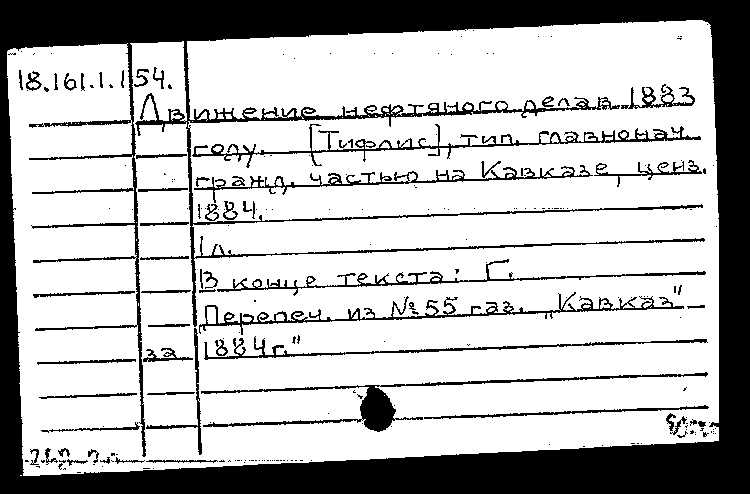 18.161.1.154.
Движение нефтяного дела в 1883
году. [Тифлис], тип. главнонач.
гражд. частью на Кавказе, ценз.
1884.
1 л.
В конце текста: Г.
Перепеч. из №55 газ. „Кавказ"
за 1884г."